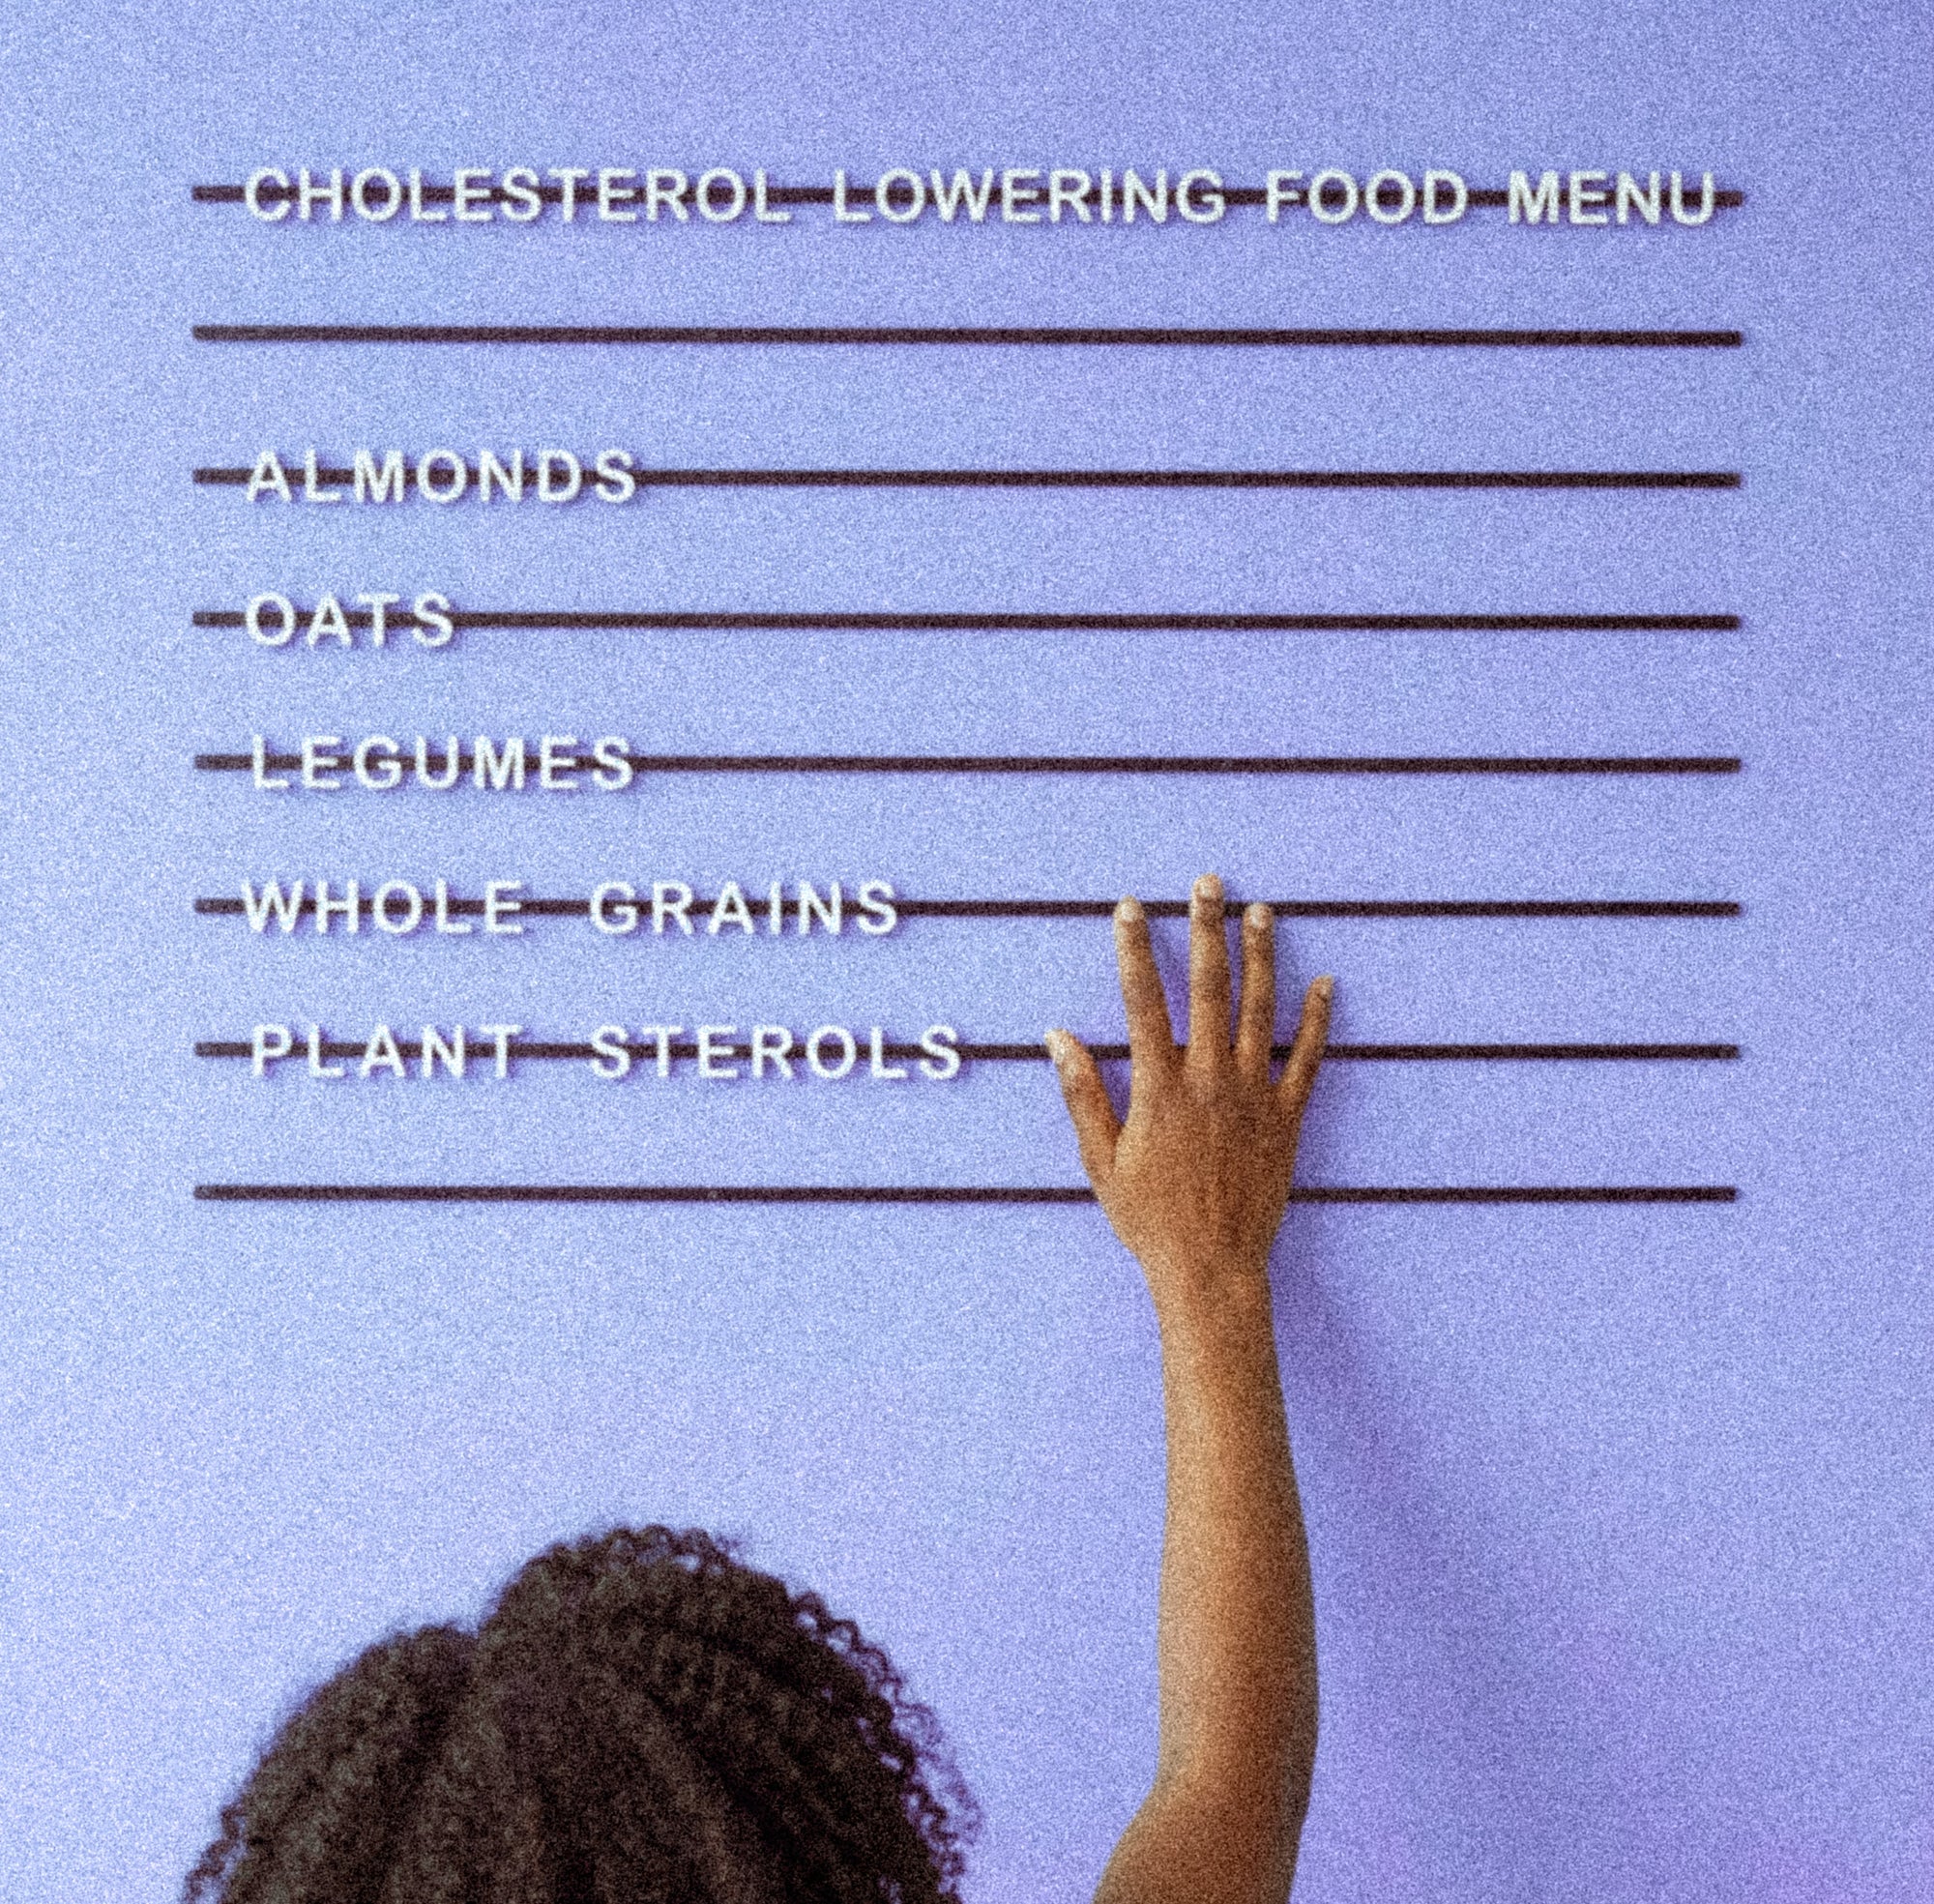 CHOLESTEROL LOWERING FOOD MENU
ALMONDS
OATS
LEGUMES
WHOLE GRAINS
PLANT STEROLS